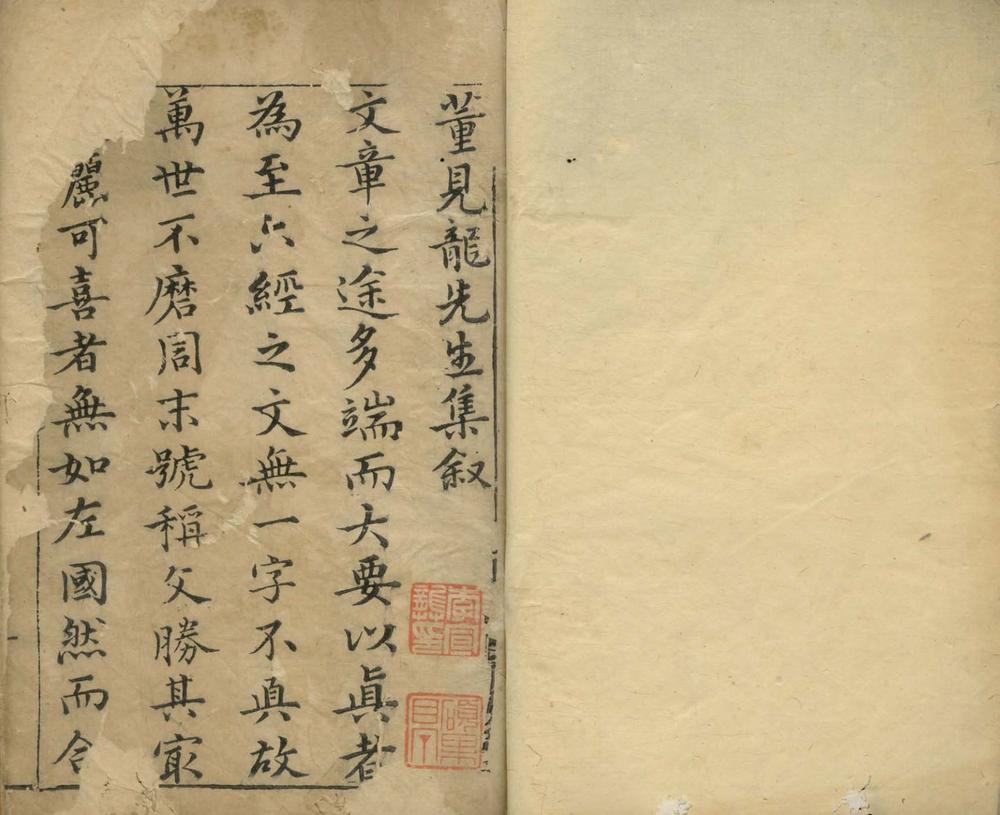 董見龍先生集叙
文章之途多端而大要以眞者
為至六經之文無一字不真故
萬世不磨周末號稱文勝其㝡
麗可喜者無如左國然而合
李宣龔印
碩果亭